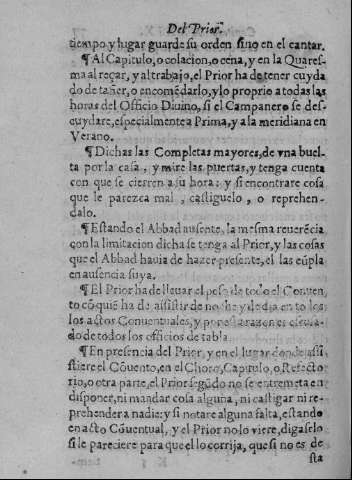 Del Prior.
tiempo, y lugar guarde su orden sino en el cantar.
¶ Al Capitulo, o colacion, o cena, y en la Quares-
ma al reçar, y al trabajo, el Prior ha de tener cuyda
do de tañer, o encomẽdarlo, y lo proprio a todas las
horas del Officio Diuino, si el Campanero se des-
cuydare, especialmente a Prima, y a la meridiana en
Verano.
¶ Dichas las Completas mayores, de vna buel-
ta por la casa, y mire las puertas, y tenga cuenta
con que se cierren a su hora: y si encontrare cosa
que le parezca mal, castiguelo, o reprehen-
dalo.
¶ Estando el Abbad ausente, la mesma reuerẽcia
con la limitacion dicha se tenga al Prior, y las cosas
que el Abbad hauia de hazer presente, el las cũpla
en ausencia suya.
¶ El Prior ha de lleuar el peso de todo el Conuen
to cõ quiẽ ha de assistir de noche y de dia en todos
los actos Conuentuales, y por esta razon es escusa-
do de todos los officios de tabla.
¶ En presencia del Prior, y en el lugar donde assi
stiere el Cõuento, en el Choro, Capitulo, o Refecto
rio, o otra parte, el Prior segũdo no se entremeta en
disponer, ni mandar cosa alguna, ni castigar ni re-
prehender a nadie: y si notare alguna falta, estando
en acto Cõuentual, y el Prior no lo viere, digaselo
si le pareciere para que el lo corrija, que si no es de
sta